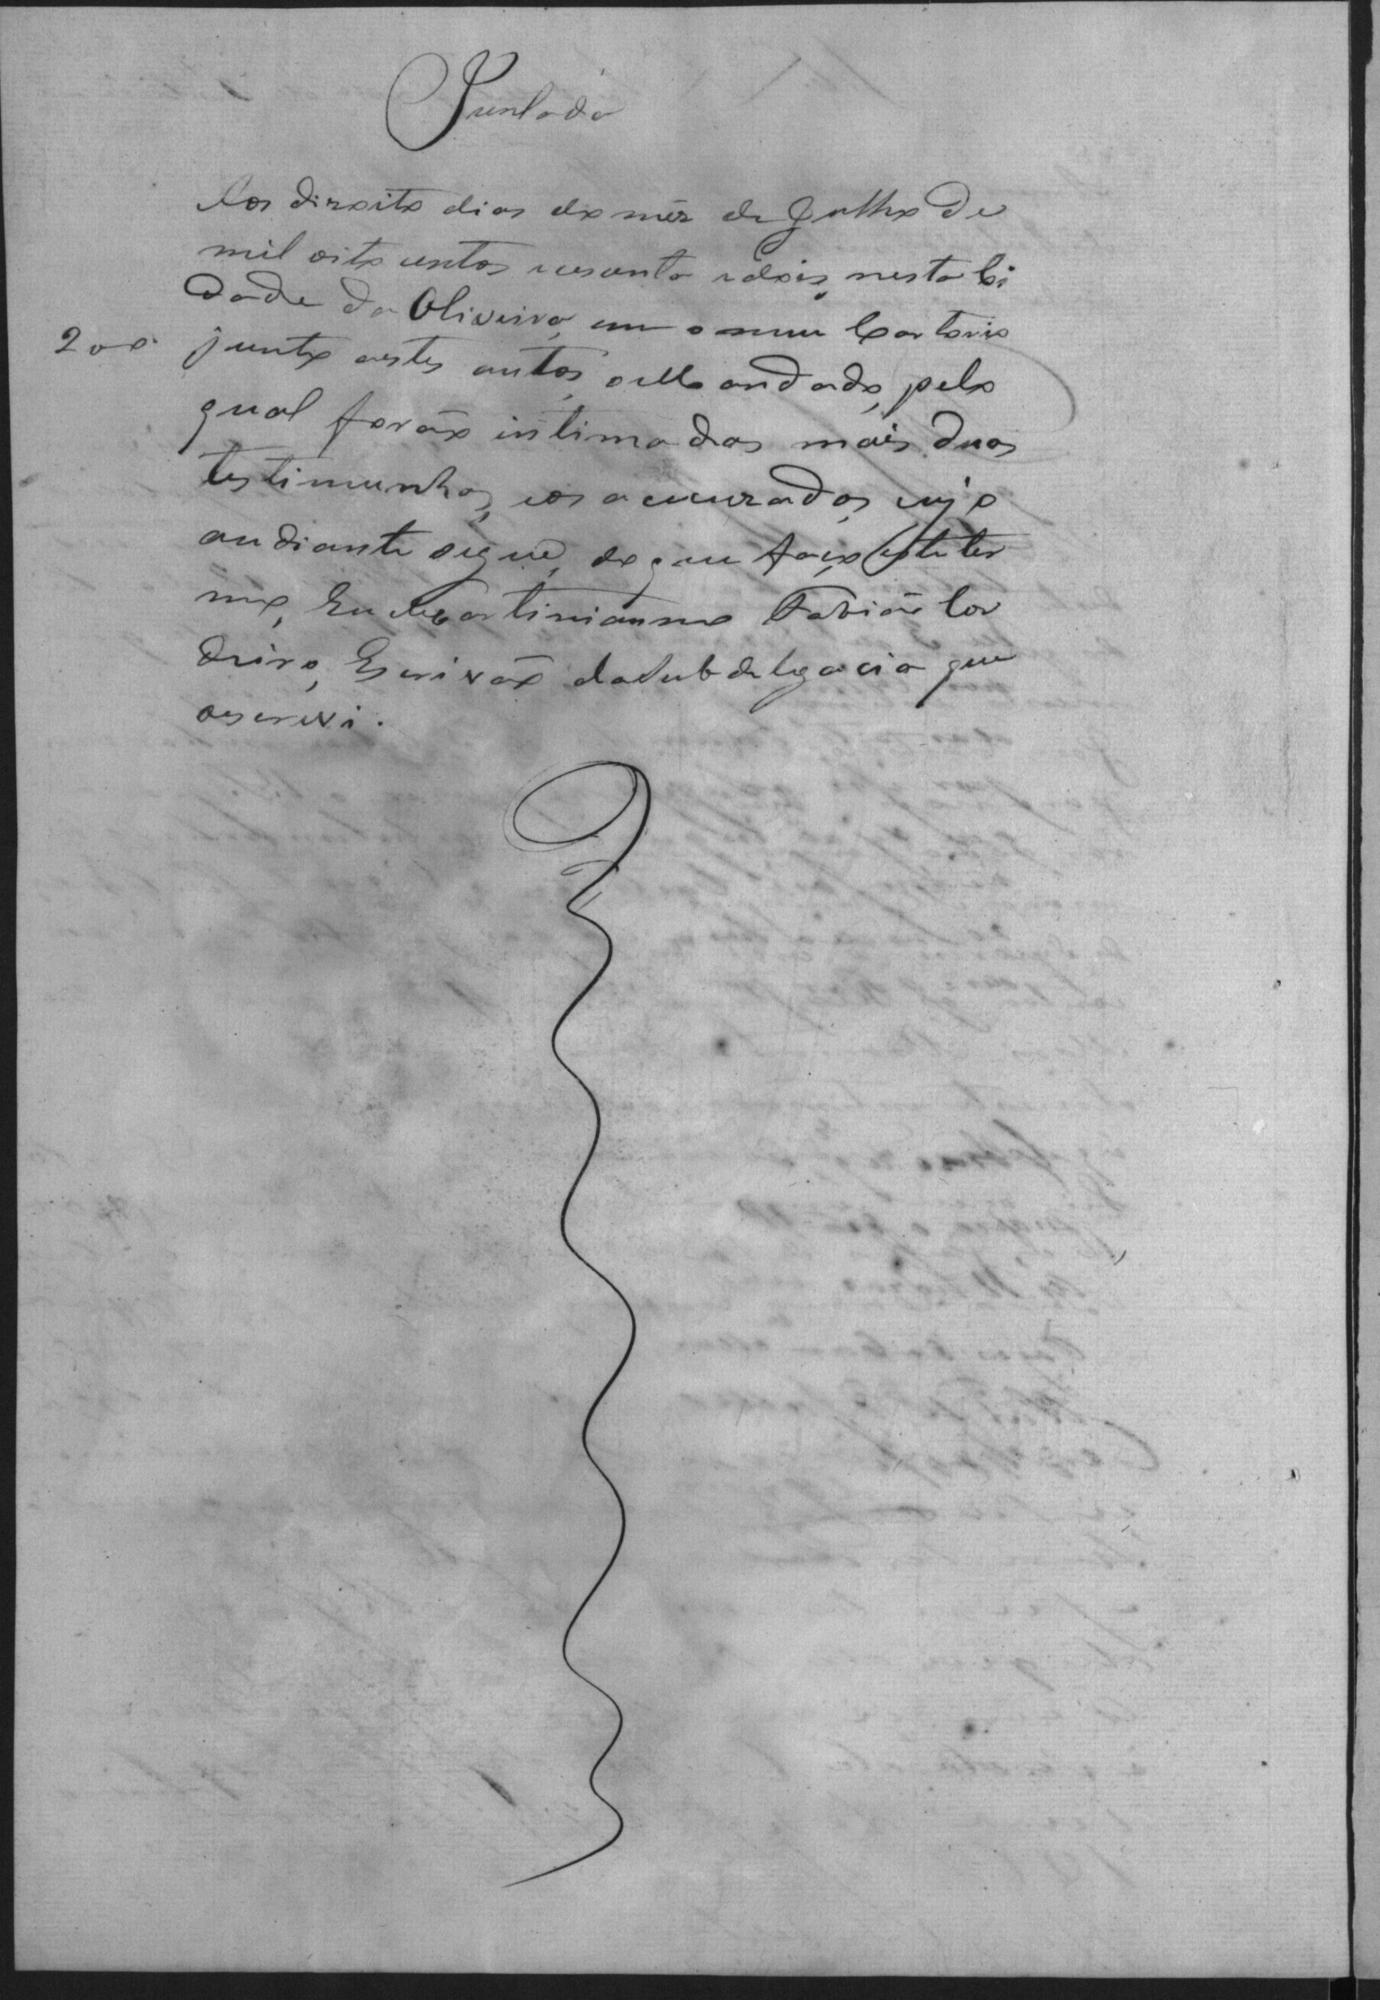 Juntada
Aos dizoito dias do mêz de Julho de
mil oito centos e oitenta e dois, nesta Ci
dade da Oliveira, em o meu Cartorio
200 junto a estes autos, o Mandado, pelo
qual forão intimadas mais duas
testimunhas, e os accuzados, cujo
an diante segue, do que faço este ter
mo, Eu Martiniano Fabião Cor
deiro, Escrivão da Subdelegacia que
o escrevi.